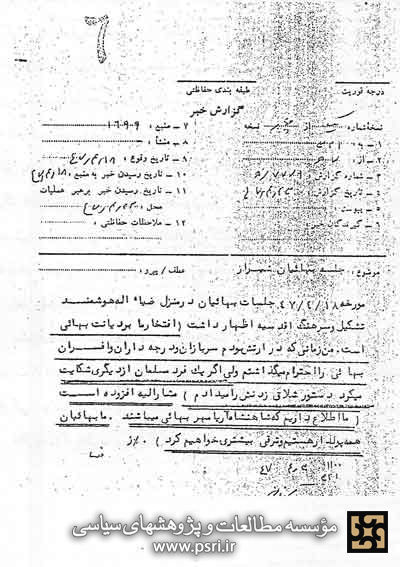 ۶
درجه فوریت
طبقه بندی حفاظتی
گزارش خبر
نسخه شماره از نسخه
۱ - به :
۲ - از :
۳ - شماره گزارش :
۴ - تاریخ گزارش :
۵ - پیوست :
۶ - گیرندگان خبر :
۷ - منبع : ۱۶۹۹
۸ - منشأ :
۹ - تاریخ وقوع :
۱۰ - تاریخ رسیدن خبر به منبع :
۱۱ - تاریخ رسیدن خبر برهبر عملیات
محل :
۱۲ - ملاحظات حفاظتی :
موضوع : جلسه بهائیان شیراز
عطف / پیرو :
مورخه ۴۷/۲/۱۸ جلسات بهائیان در منزل ضیاء اله هوشمند
تشکیل و سرهنگ اقدسیه اظهار داشت ( افتخار ما بر دیانت بهائی
است . من زمانی که در ارتش بودم سربازان و درجه داران و افسران
بهائی را احترام میگذاشتم ولی اگر یک فرد مسلمان از دیگری شکایت
میکرد دستور شلاق زدنش را میدادم ) مشارالیه افزوده است
( ما اطلاع داریم که شاهنشاه آریامهر بهائی میباشند . ما بهائیان
همه پولدار هستیم و ترقی بیشتری خواهیم کرد )
مؤسسه مطالعات و پژوهشهای سیاسی
www.psri.ir